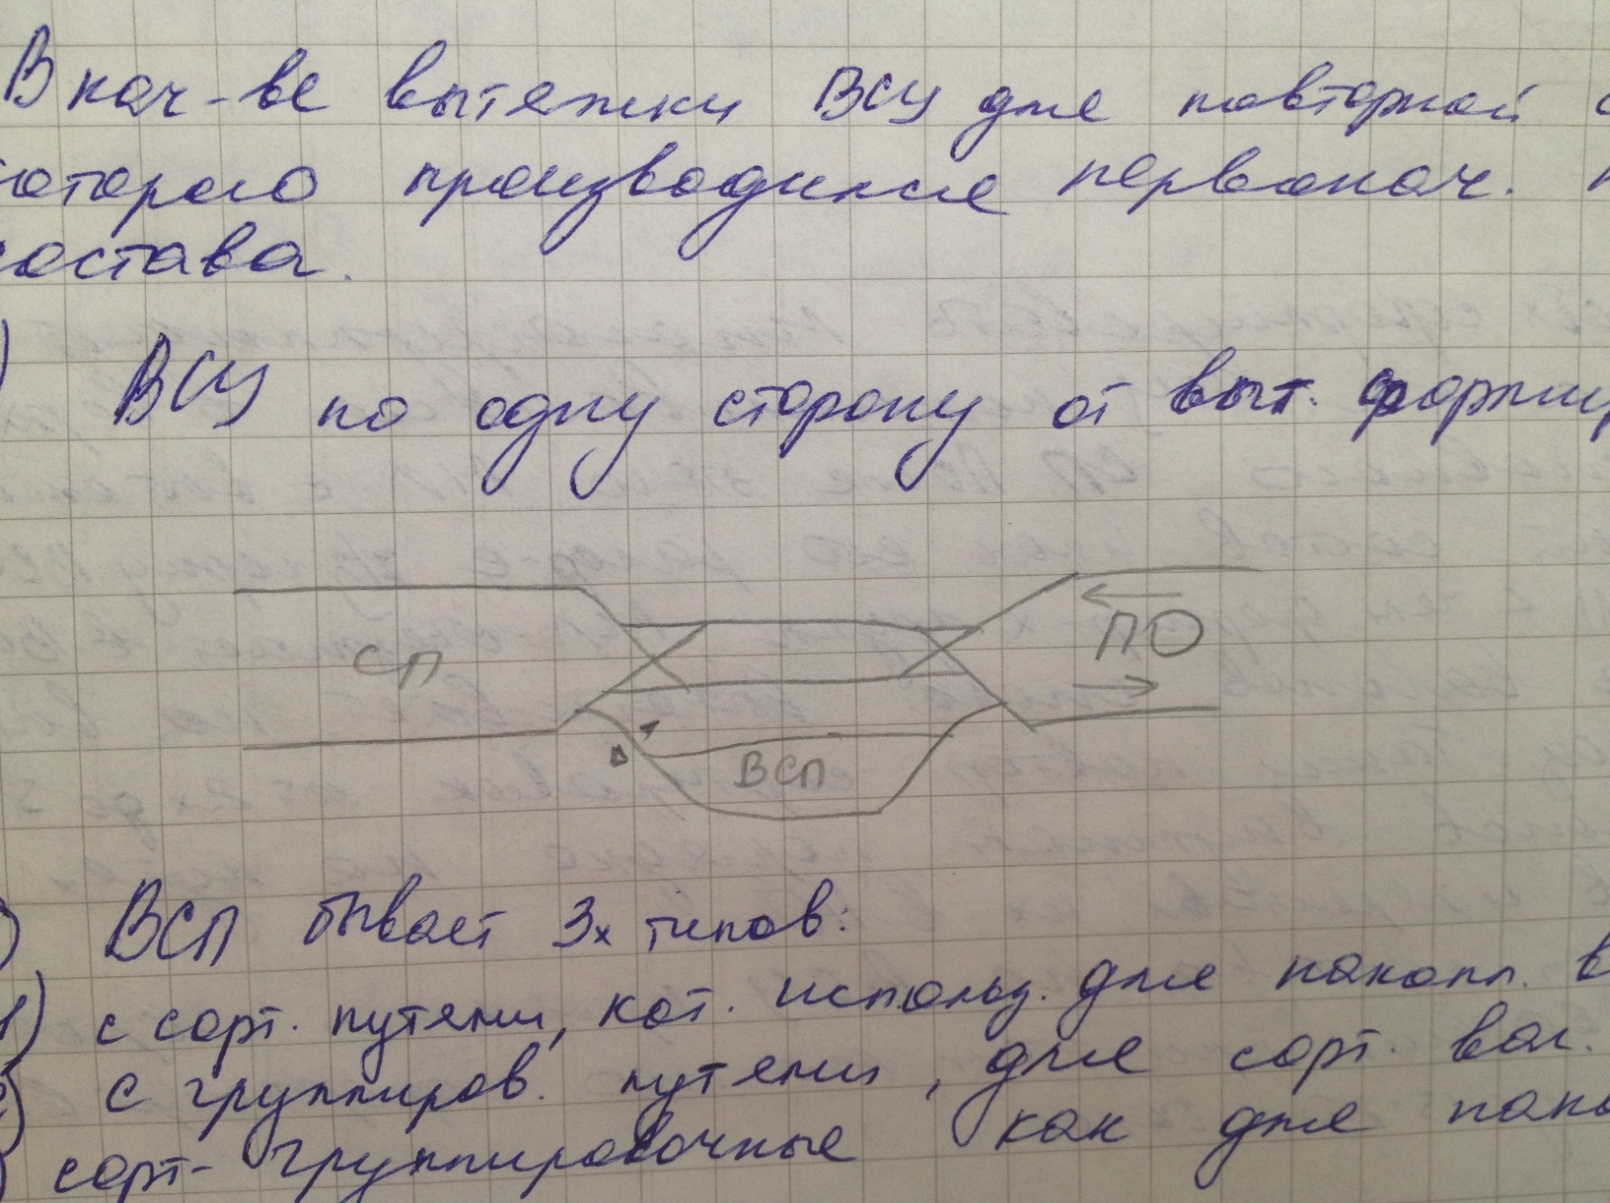 В кач-ве вытяжки ВСУ для повторной с
которого производился первонач.
состава.
) ВСУ по одну сторону от выт. формир
СП
ПО
ВСП
) ВСП бывает 3х типов:
1) с сорт. путями, кот. использ. для накопл. в
2) с группиров. путями, для сорт. ваг.
) сорт-группировочные как для нако